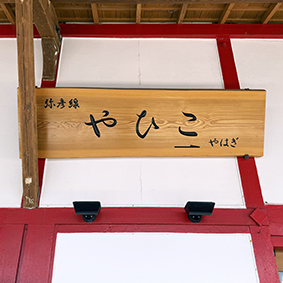 弥彦線
やひこ
やはぎ